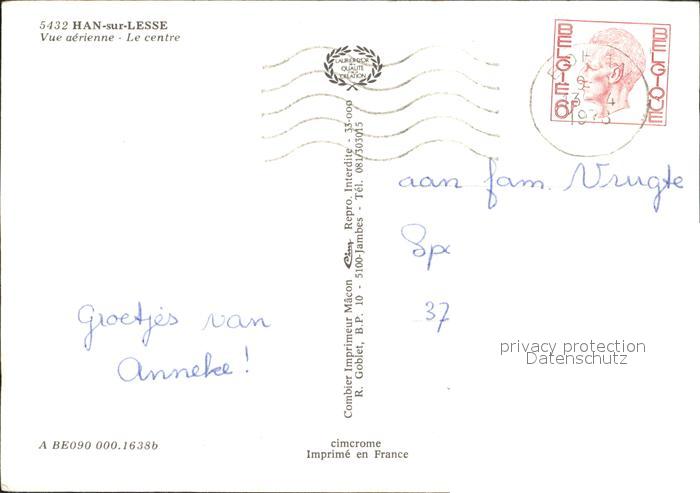 5432 HAN-sur-LESSE
Vue aérienne - Le centre
LAURIER D'OR
DE LA
QUALITÉ
DE LA
CREATION
BELGIE 6F
BELGIQUE
1973
aan fam. Vrugte
37
Groetjes van
Anneke!
Combier Imprimeur Mâcon Cim Repro. Interdite - 33-000
R. Goblet, B.P. 10 - 5100-Jambes - Tél. 081/303015
privacy protection
Datenschutz
A BE090 000.1638b
cimcrome
Imprimé en France